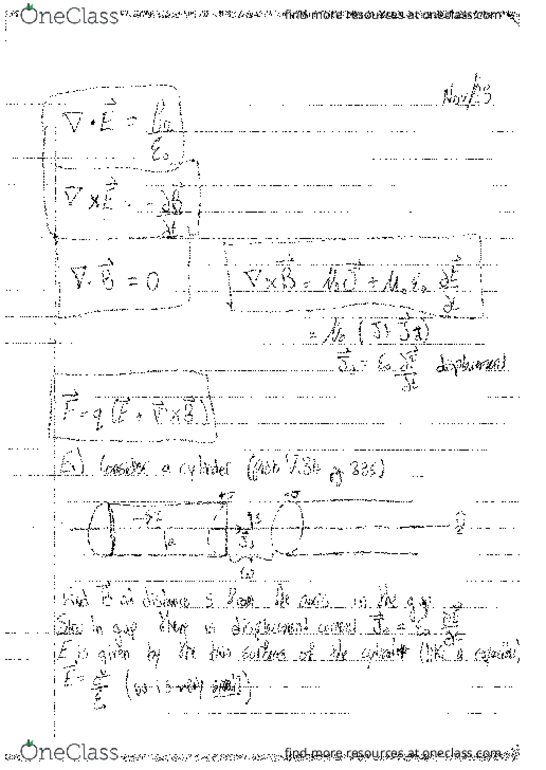 OneClass find more resources at oneclass.com
∇·E⃗ = ρ/ε₀
∇×E⃗ = -∂B⃗/∂t
∇·B⃗ = 0 ∇×B⃗ = μ₀J⃗ + μ₀ε₀ ∂E⃗/∂t
= μ₀ (J⃗ + J⃗d)
J⃗d = ε₀ ∂E⃗/∂t displacement
F⃗ = q (E⃗ + v⃗×B⃗)
Ex) Consider a cylinder (prob 7.36 pg 335)
+σ -σ
a
Find B⃗ at distance s from the axis in the gap
Since in gap there is displacement current J⃗d = ε₀ ∂E⃗/∂t
E is given by the two surfaces of the cylinder (like a capacitor)
E⃗ = σ/ε (w is very small)
OneClass find more resources at oneclass.com